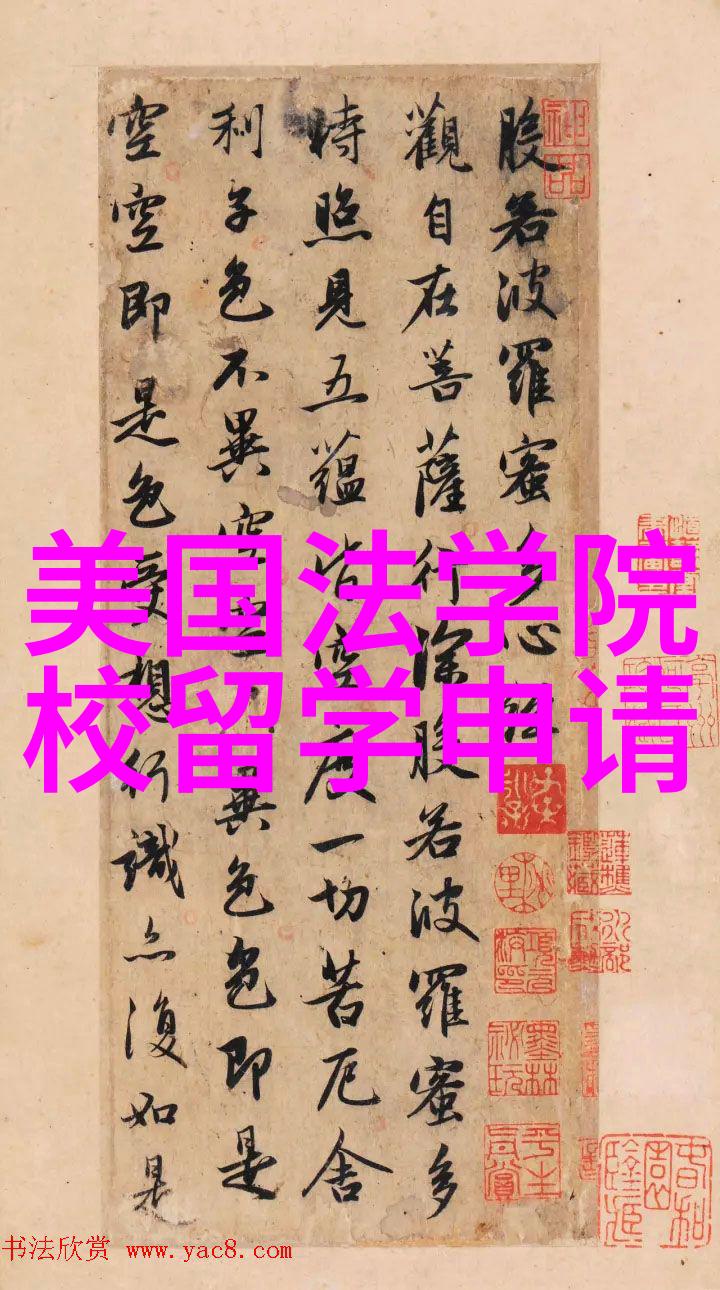 般若波羅蜜多心經
觀自在菩薩行深般若波羅蜜多
時照見五蘊皆空度一切苦厄舍
利子色不異空空不異色色即是
空空即是色受想行識亦復如是
美国法学院
校留学申请
书法欣赏 www.yac8.com